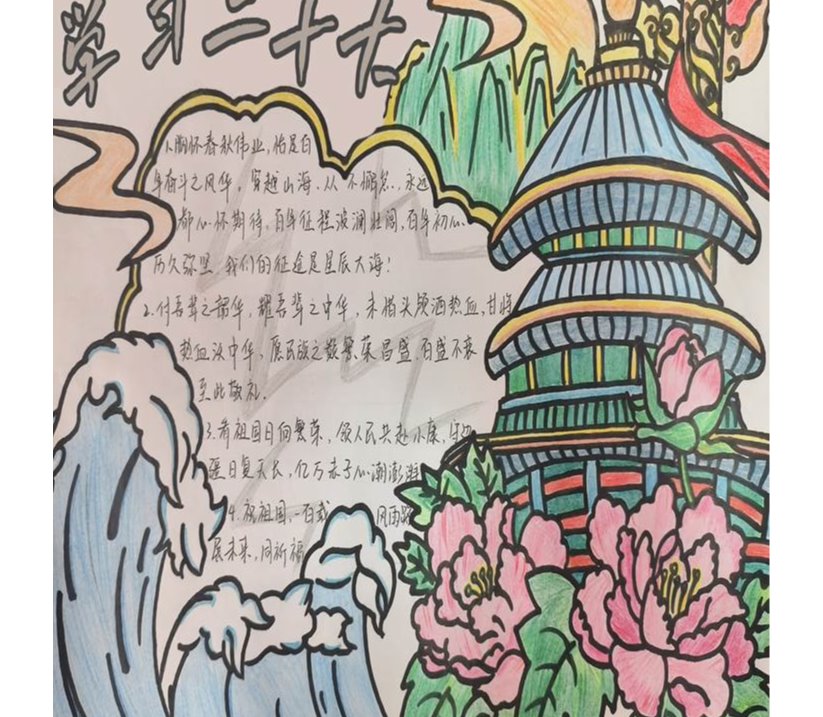 学习二十大
1.胸怀春秋伟业,恰是百
年奋斗之风华,穿越山海、从不懈怠、永远
都心怀期待,百年征程波澜壮阔,百年初心
历久弥坚.我们的征途是星辰大海!
2.付吾辈之韶华,耀吾辈之中华,未惜头颅洒热血,甘将
热血沃中华,愿民族之数繁荣昌盛.百盛不衰
至此敬礼.
3.看祖国日向繁荣,领人民共赴小康,守边
疆日复天长,亿万赤子心潮澎湃
4.祝祖国,一百载 风雨
展未来,同祈福